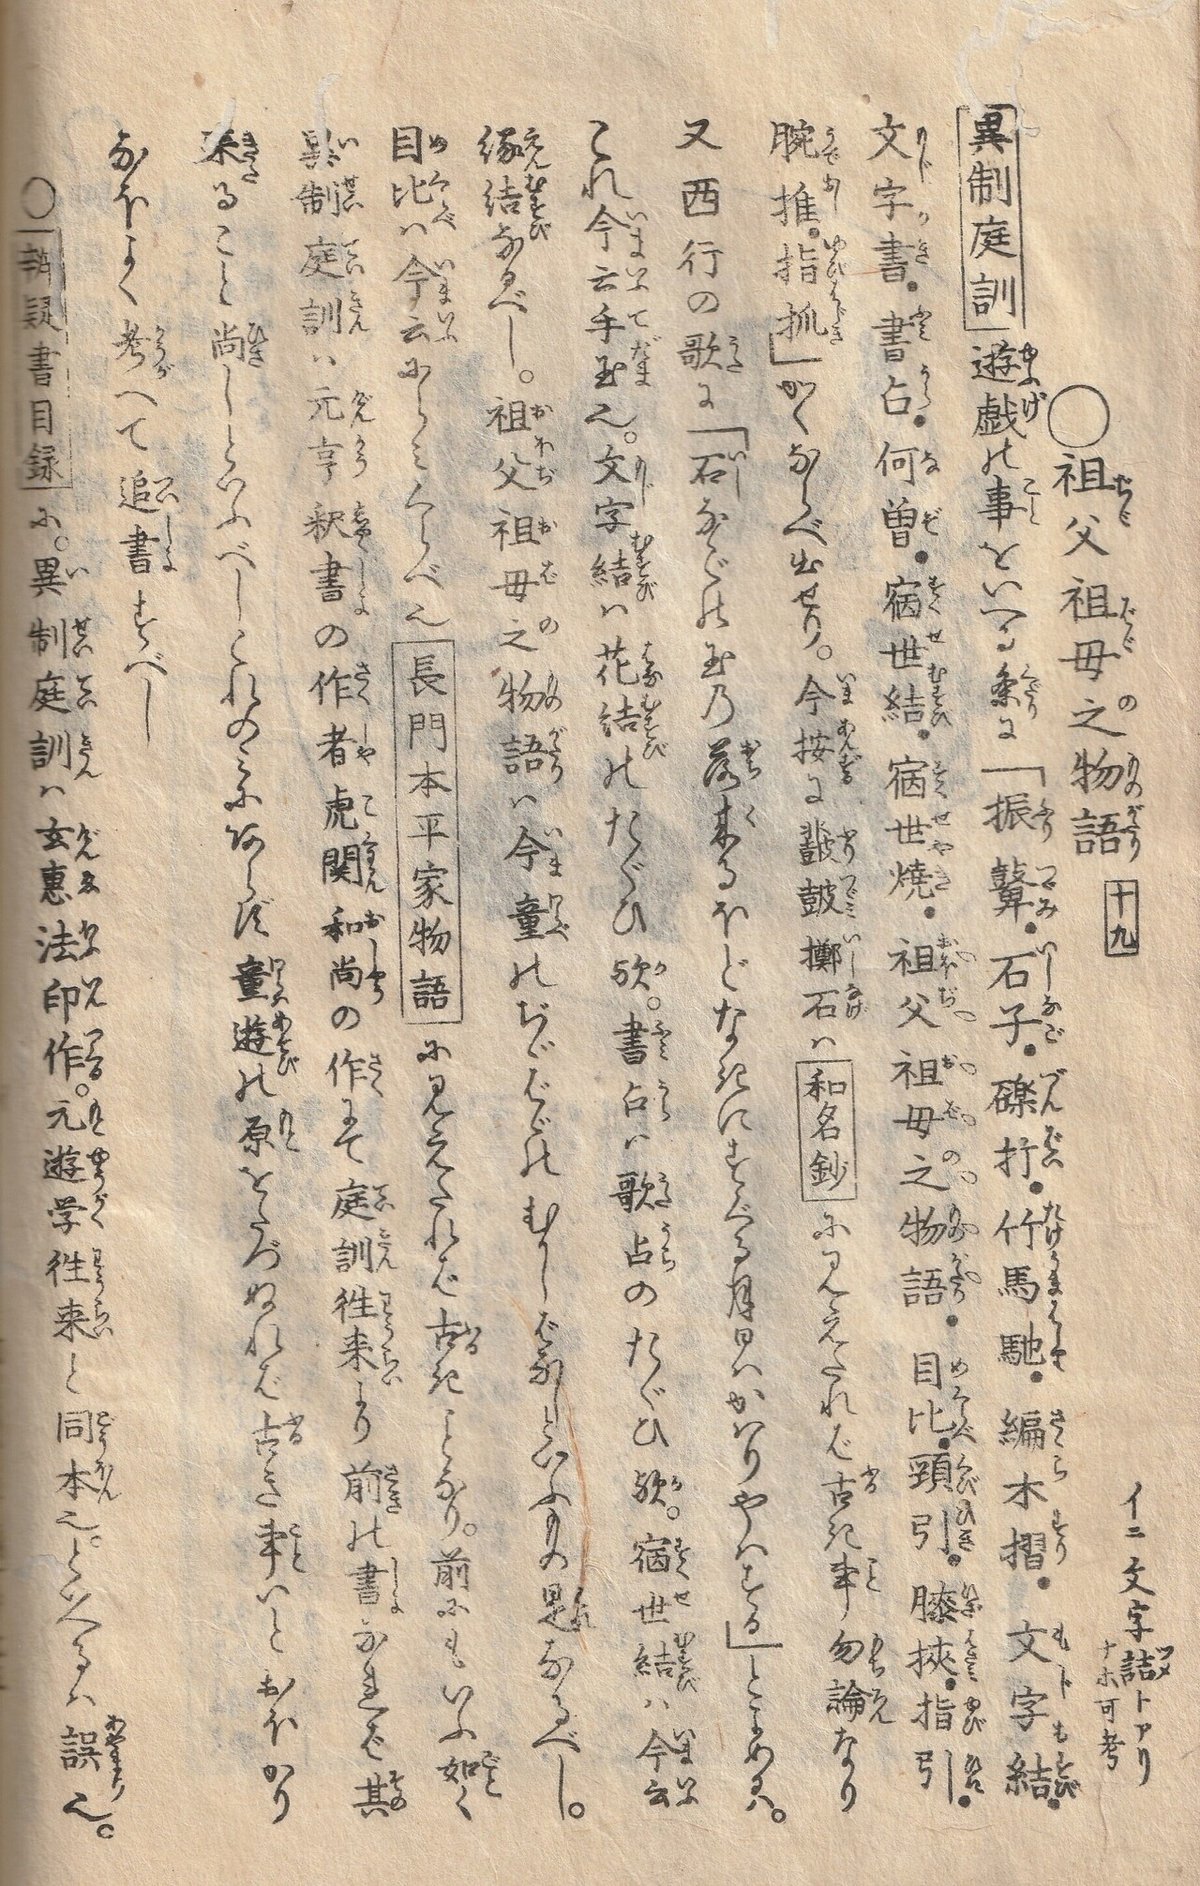 ○祖父祖母之物語 十九
イニ文字詰トアリ
ナホ可考
異制庭訓 遊戯の事をいへる条に「振鼙・石子・礫打・竹馬馳・編木摺・文字結・
文字書・書占・何曽・宿世結・宿世焼・祖父祖母之物語・目比・頸引・膝挾・指引・
腕推・指抓」かくならべ出せり。今按に鼗皷擲石は 和名鈔 に見えたれば古き事勿論なり
又西行の歌に「石なごの玉の落来るほどなきにすぐる月日はかはりやはする」とよめるハ。
これ今云手玉也。文字結は花結のたぐひ欤。書占は歌占のたぐひ欤。宿世結は今云
縁結なるべし。祖父祖母之物語は今童のぢゞばゞのむかしばなしといふもの是なるべし。
目比は今云にらみくらべ也 長門本平家物語 に見えたれば古きことなり。前にもいふ如く
異制庭訓は元亨釈書の作者虎関和尚の作にて庭訓徃来より前の書なれば其
来ること尚しといふべしこれのみにあらず童遊の原をたづぬれば古き事いとおほかり
なほよく考へて追書すべし
○ 辨疑書目録 に。異制庭訓は玄惠法印作。元遊学徃来と同本也。といへるは誤也。